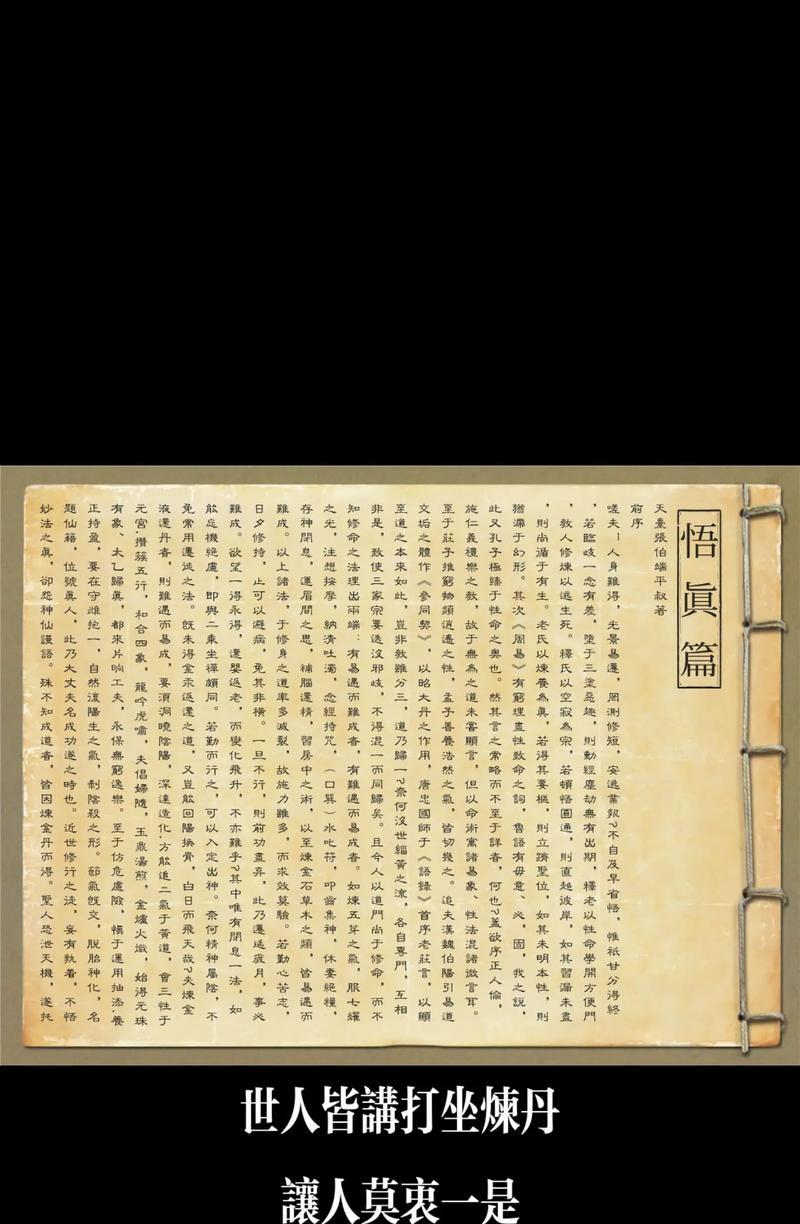 悟眞篇
天臺張伯端平叔著
前序
嗟夫！人身難得，光景易遷，罔測修短，安逃業報？不自及早省悟，惟祇甘分得終
，若臨歧一念有差，墮于三塗惡趣，則動經塵劫無有出期，釋老以性命學開方便門
，教人修煉以逃生死。釋氏以空寂為宗，若頓悟圓通，則直超彼岸，如其習漏未盡
，則尚循于有生。老氏以煉養為眞，若得其要樞，則立躋聖位，如其未明本性，則
猶滯于幻形。其次《周易》有窮理盡性致命之詞，魯語有毋意、必，固，我之說，
此又孔子極臻于性命之奧也。然其言之常略而不至于詳者，何也？蓋欲序正人倫，
施仁義禮樂之教，故于無為之道未嘗顯言，但以命術寓諸易象、性法混諸微言耳。
至于莊子推窮物類逍遙之性，孟子善養浩然之氣，皆切幾之。迨夫漢魏伯陽引易道
交垢之體作《參同契》，以昭大丹之作用，唐忠國師于《語錄》首序老莊言，以顯
至道之本來如此，豈非教雖分三，道乃歸一？奈何沒世緇黃之流，各自專門，互相
非是，致使三家宗要迭沒邪歧，不得混一而同歸矣。且今人以道門尚于修命，而不
知修命之法理出兩端：有易遇而難成者，有難遇而易成者。如煉五芽之氣，服七耀
之光，注想按摩，納清吐濁，念經持咒，（口巽）水叱符，叩齒集神，休妻絕糧，
存神閉息，運眉間之思，補腦還精，習房中之術，以至煉金石草木之類，皆易遇而
難成。以上諸法，于修身之道率多滅裂，故施力雖多，而求效莫驗。若勤心苦志，
日夕修持，止可以避病，免其非橫。一旦不行，則前功盡弃，此乃遷延歲月，事必
難成。欲望一得永得，還嬰返老，而變化飛升，不亦難乎？其中唯有閉息一法，如
能忘機絕慮，即與二乘坐禪頗同。若勤而行之，可以入定出神。奈何精神屬陰，不
免常用遷徙之法。既未得金汞返還之道，又豈能回陽換骨，白日而飛天哉？夫煉金
液還丹者，則難遇而易成，要須洞曉陰陽，深達造化，方能追二氣于黃道，會三性于
元宮，攢簇五行，和合四象，龍吟虎嘯，夫倡婦隨，玉鼎湯煎，金爐火熾，始得元珠
有象、太乙歸眞，都來片响工夫，永保無窮逸樂。至于仿危慮險，愼于運用抽添，養
正持盈，要在守雌抱一，自然復陽生之氣，剝陰殺之形。節氣既交，脫胎神化，名
題仙籍，位號眞人，此乃大丈夫名成功遂之時也。近世修行之徒，妄有執着，不悟
妙法之眞，卻怨神仙謾語。殊不知成道者，皆因煉金丹而得。聖人恐泄天機，遂托
世人皆講打坐煉丹
讓人莫衷一是